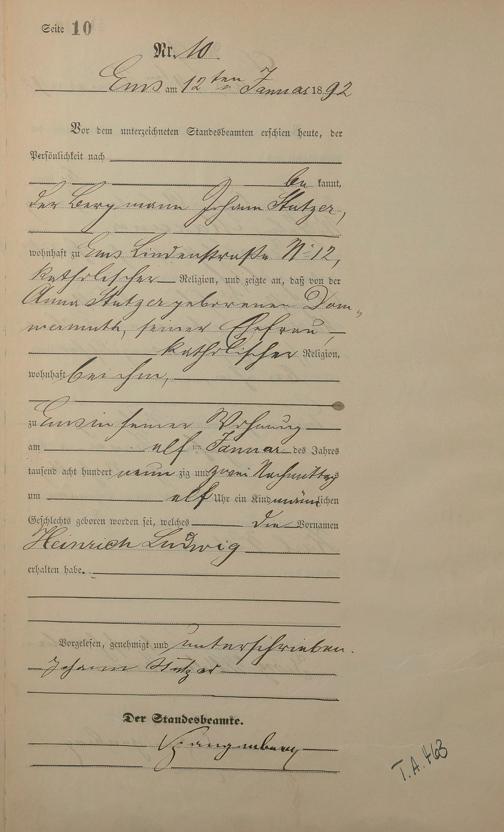 Seite 10
Nr. 10
Ems am 12ten Januar 1892
Vor dem unterzeichneten Standesbeamten erschien heute, der
Persönlichkeit nach
be kannt,
der Bergmann Johann Stutzer,
wohnhaft zu Ems Lindenstraße No 12,
katholischer Religion, und zeigte an, daß von der
Anna Stutzer geborenen Dom-
mermuth, seiner Ehefrau,
katholischer Religion,
wohnhaft bei ihm,
zu Ems in seiner Wohnung
am elf ten Januar des Jahres
tausend acht hundert neun zig und zwei Nachmittags
um elf Uhr ein Kind männlichen
Geschlechts geboren worden sei, welches die Vornamen
Heinrich Ludwig
erhalten habe.
Vorgelesen, genehmigt und unterschrieben.
Johann Stutzer
Der Standesbeamte.
T.A. 463